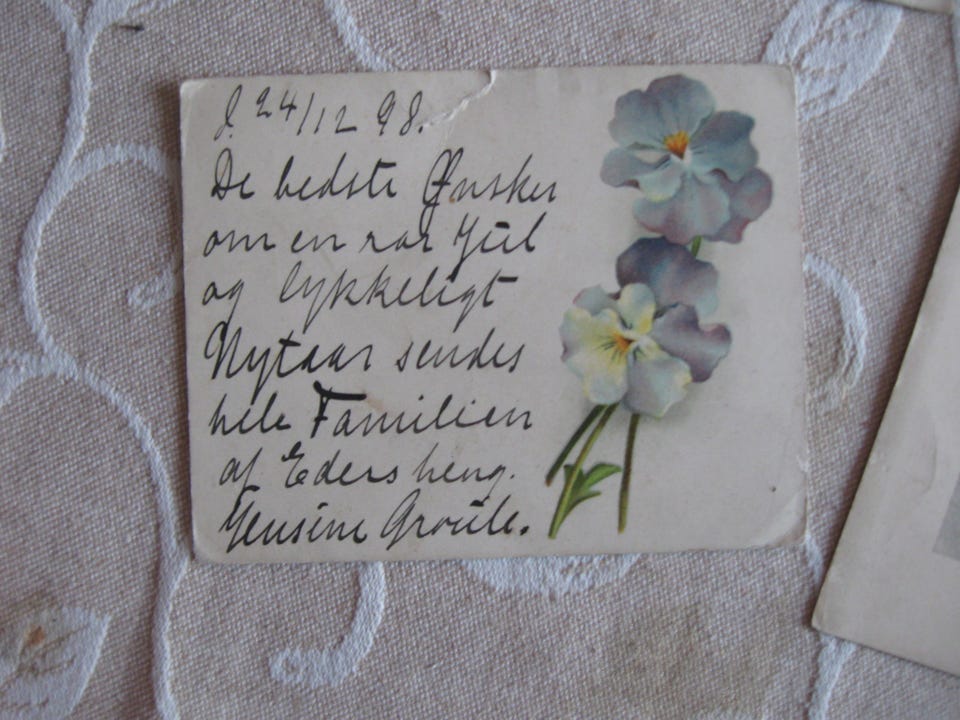 d. 24/12 98.
De bedste Ønsker
om en rar Jul
og lykkeligt
Nytaar sendes
hele Familien
af Eders heng.
Jensine Groule.